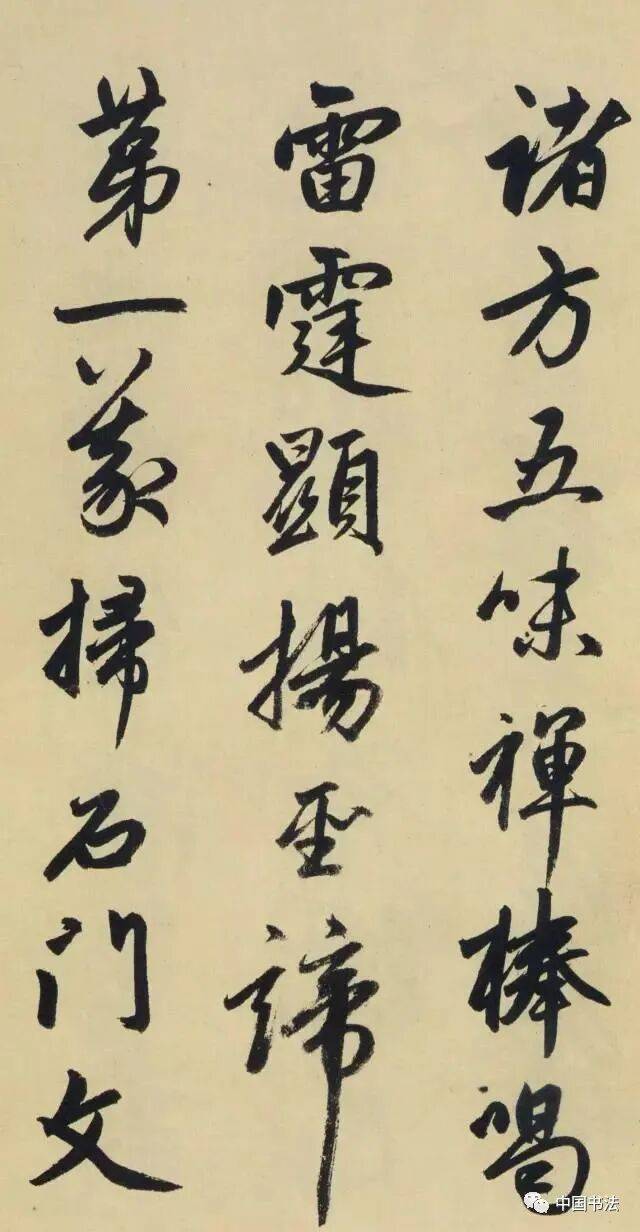 诸方五味禅棒喝
雷霆顯揚圣諦
苐一義掃石門文
中国书法